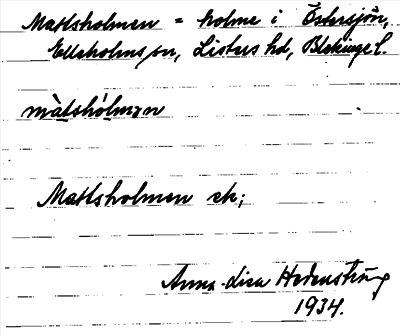 Mattsholmen = holme i Östersjön,
Elleholms sn, Listers hd, Blekinge l.
màtshólmən
Mattsholmen ek;
Anna-Lisa Hedenstierna
1934.